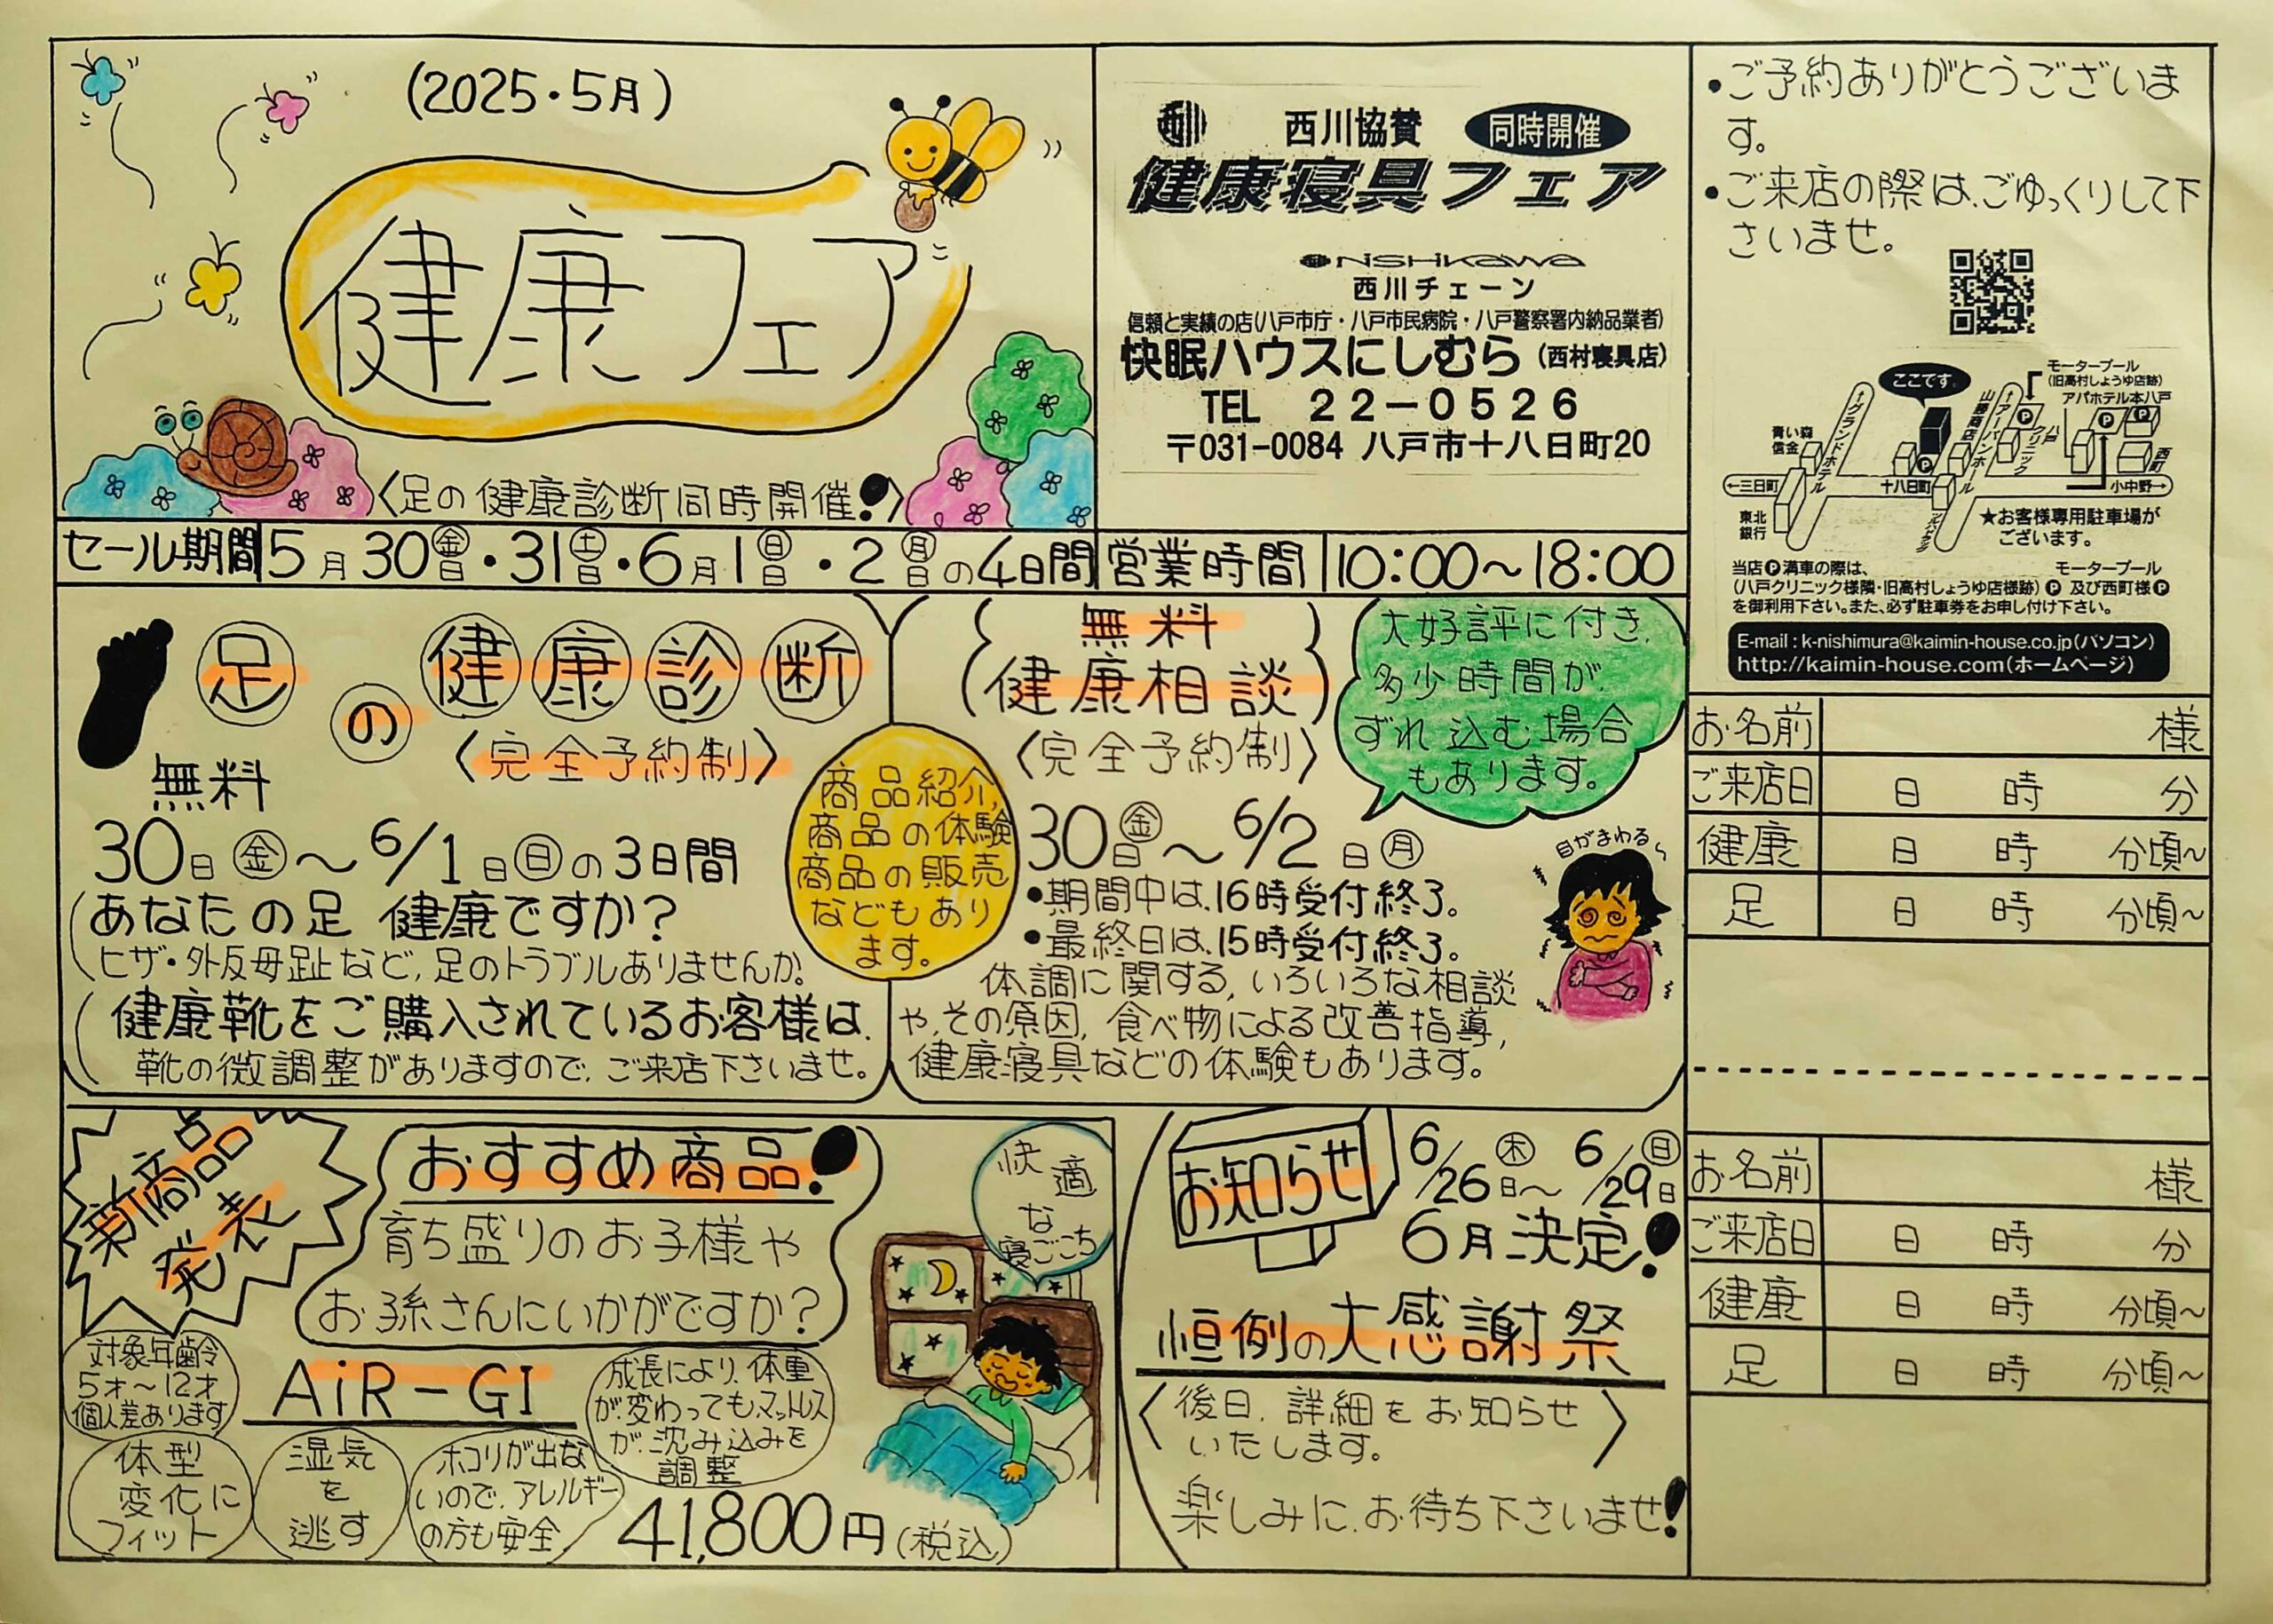 (2025・5月)
健康フェア
〈足の健康診断同時開催!〉
西川協賛 同時開催
健康寝具フェア
nishikawa
西川チェーン
信頼と実績の店(八戸市庁・八戸市民病院・八戸警察署内納品業者)
快眠ハウスにしむら(西村寝具店)
TEL 22-0526
〒031-0084 八戸市十八日町20
・ご予約ありがとうございま
す。
・ご来店の際は、ごゆっくりして下
さいませ。
モータープール
(旧高村しょうゆ店跡)
アパホテル本八戸
ここです。
↑グランドホテル
山勝商店
↑アーバンホール
八戸クリニック
青い森
信金
←三日町
十八日町
西町
小中野→
東北
銀行
★お客様専用駐車場が
ございます。
当店Ⓟ満車の際は、 モータープール
(八戸クリニック様隣・旧高村しょうゆ店様跡)Ⓟ 及び西町様Ⓟ
を御利用下さい。また、必ず駐車券をお申し付け下さい。
E-mail : k-nishimura@kaimin-house.co.jp(パソコン)
http://kaimin-house.com(ホームページ)
セール期間 5月30日㊎・31日㊏・6月1日㊐・2日㊊の4日間
営業時間 10:00～18:00
足の健康診断
〈完全予約制〉
無料
30日㊎～6/1日㊐の3日間
あなたの足 健康ですか?
ヒザ・外反母趾など、足のトラブルありませんか。
健康靴をご購入されているお客様は、
靴の微調整がありますので、ご来店下さいませ。
商品紹介、
商品の体験
商品の販売
などもあり
ます。
無料
健康相談
〈完全予約制〉
大好評に付き、
多少時間が、
ずれ込む場合
もあります。
30日㊎～6/2日㊊
・期間中は、16時受付終了。
・最終日は、15時受付終了。
体調に関する、いろいろな相談
や、その原因、食べ物による改善指導、
健康寝具などの体験もあります。
目がまわる～
お名前 様
ご来店日 日 時 分
健康 日 時 分頃～
足 日 時 分頃～
新商品
発表
おすすめ商品!
育ち盛りのお子様や
お孫さんにいかがですか?
快適
な
寝ごこち
対象年齢
5才～12才
個人差あります
AiR-GI
成長により、体重
が、変わってもマットレス
が、沈み込みを
調整
体型
変化に
フィット
湿気
を
逃す
ホコリが出な
いので、アレルギー
の方も安全
41,800円(税込)
お知らせ
6/26日㊍～6/29日㊐
6月決定!
恒例の大感謝祭
〈後日、詳細をお知らせ
いたします。〉
楽しみに、お待ち下さいませ!
お名前 様
ご来店日 日 時 分
健康 日 時 分頃～
足 日 時 分頃～